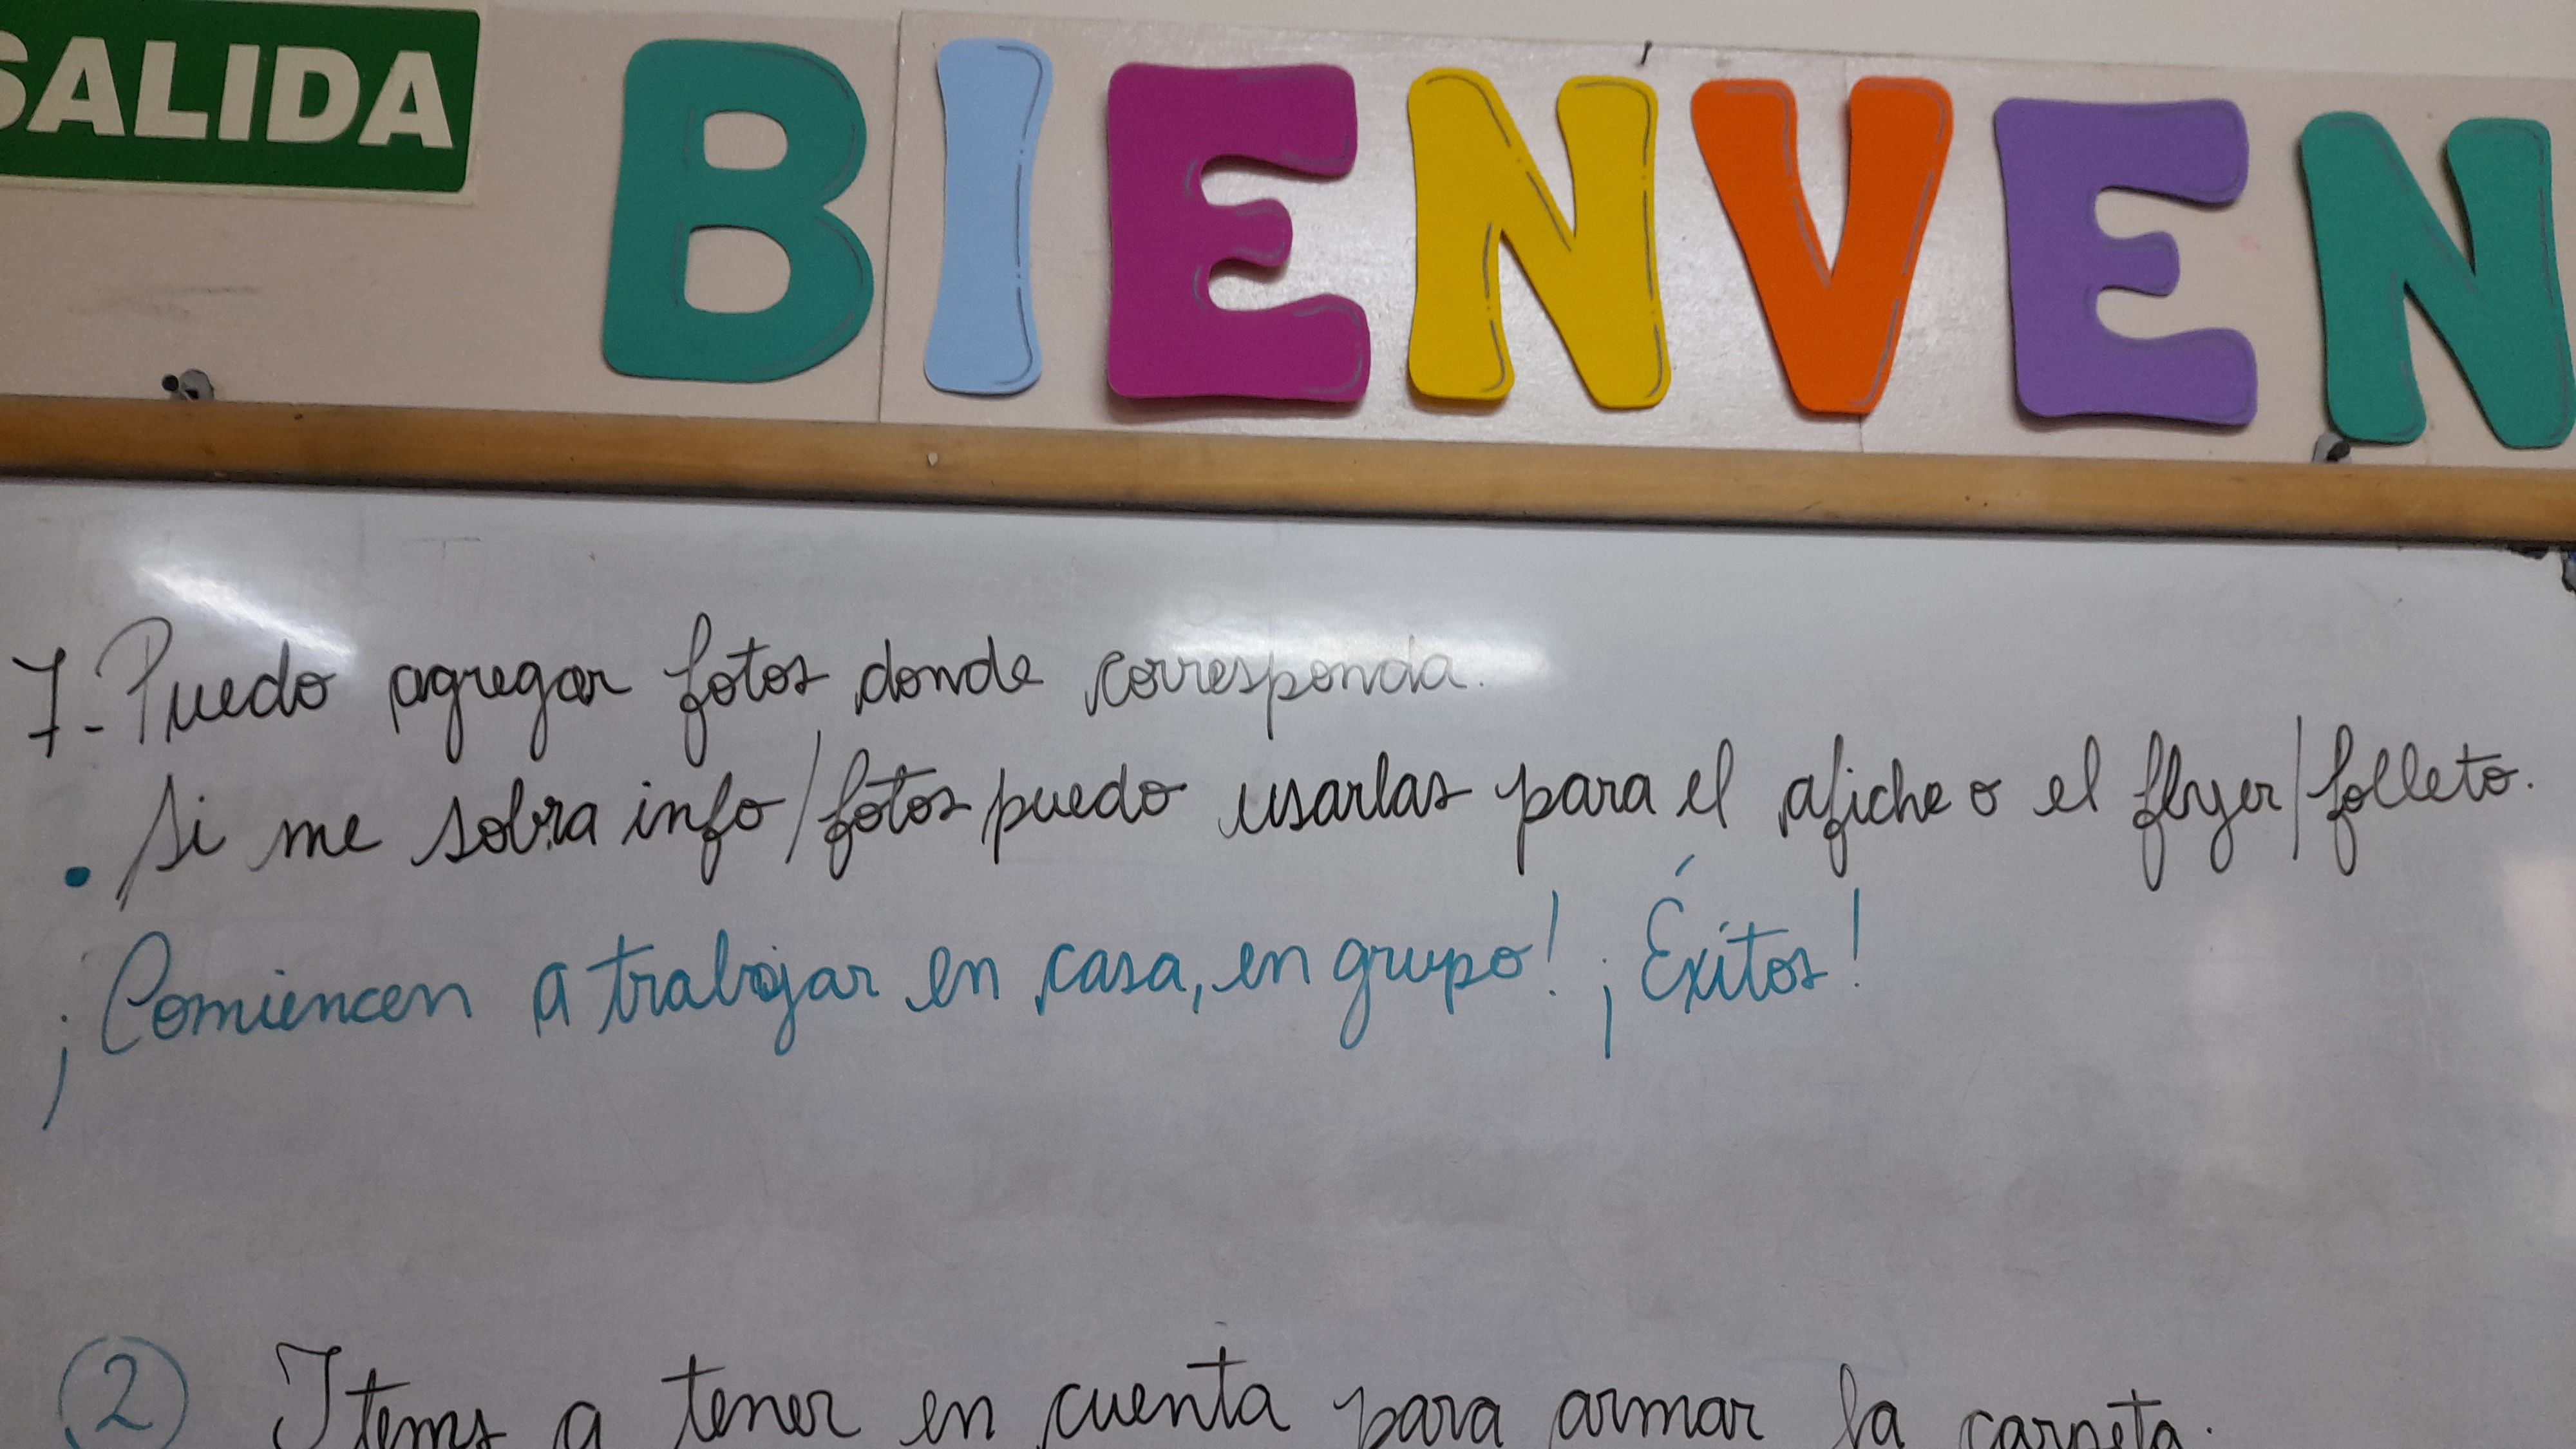 SALIDA
BIENVEN
7-Puedo agregar fotos donde corresponda.
• Si me sobra info/fotos puedo usarlas para el afiche o el flyer/folleto.
¡Comiencen a trabajar en casa, en grupo! ¡Éxitos!
2 Items a tener en cuenta para armar la carpeta.